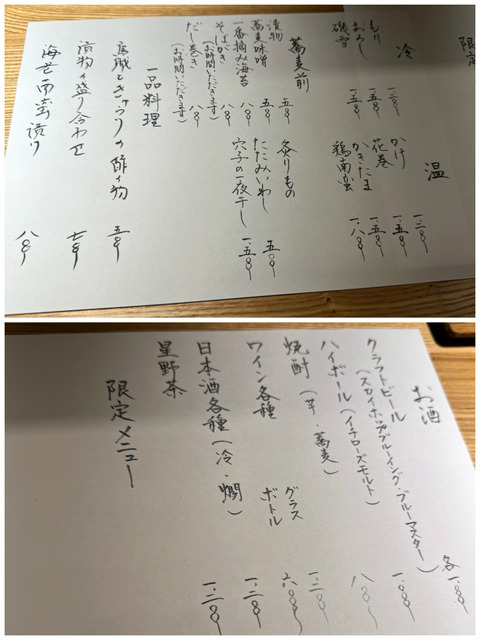 限定
冷
もり 一・二〇〇
おろし 一・五〇〇
磯雪 一・五〇〇
温
かけ 一・二〇〇
花巻 一・五〇〇
かきたま 一・五〇〇
鶏南蛮 一・八〇〇
蕎麦前
漬物 五〇〇
蕎麦味噌 五〇〇
一番摘み海苔 八〇〇
そばがき 八〇〇
(お時間いただきます)
だし巻き 八〇〇
(お時間いただきます)
炙りもの
たたみいわし 五〇〇
穴子の一夜干し 一・五〇〇
一品料理
烏賊ときゅうりの酢の物 五〇〇
漬物の盛り合わせ 七〇〇
海老南蛮漬け 八〇〇
お酒
クラフトビール 各一・〇〇〇
(スカイホップブルーイング・ブルーマスター)
ハイボール(イチローズモルト) 一・〇〇〇
焼酎(芋・蕎麦) 八〇〇
ワイン各種 グラス
ボトル
日本酒各種(冷・燗) 一・二〇〇
星野茶 一・二〇〇
限定メニュー